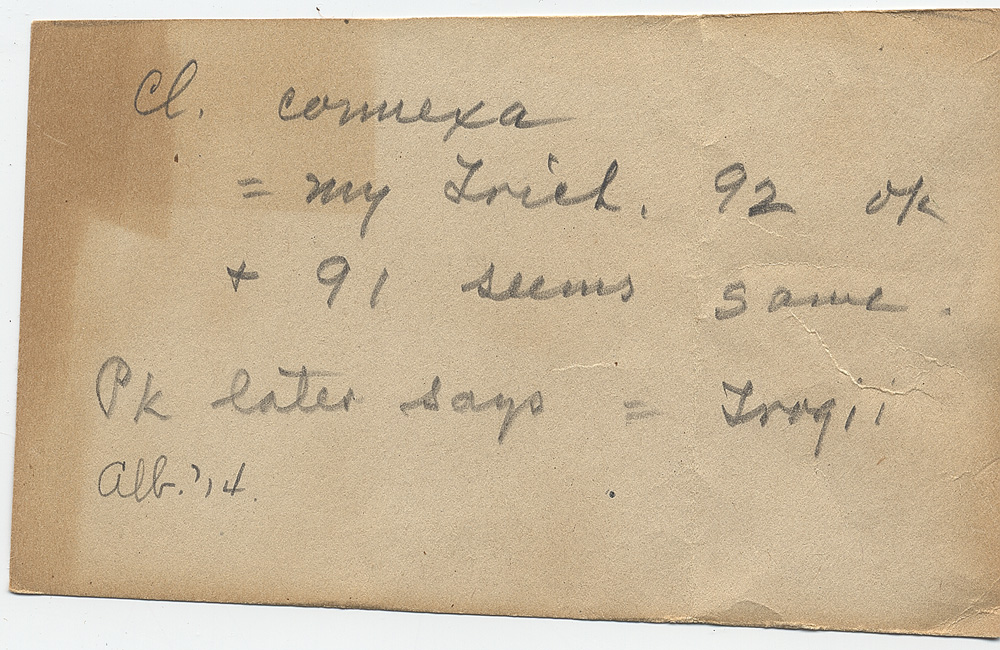 Cl. connexa
= my Trich. 92 ok
+ 91 seems same.
Pk later says = Trogii
Alb. '14.